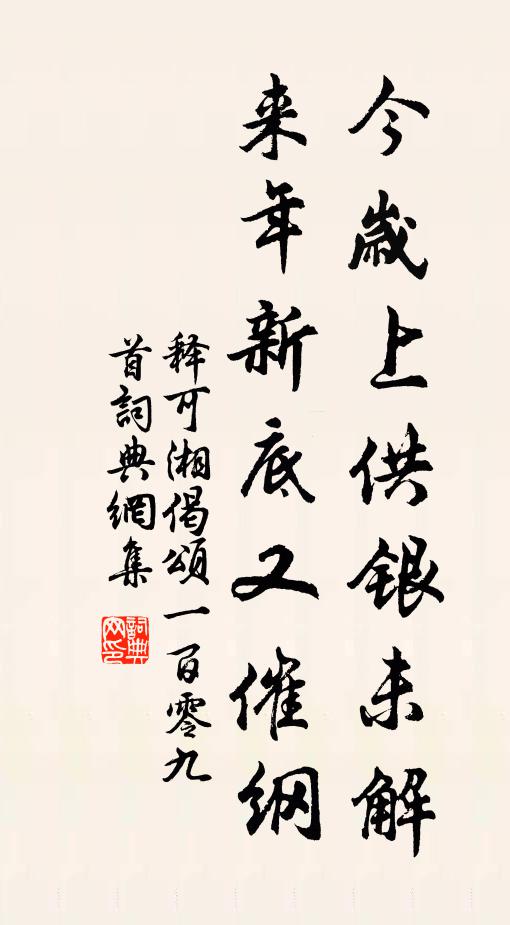 今歲上供銀未解
来年新底又催綱
释可湘偈頌一百零九
首詞典網集
詞典网印